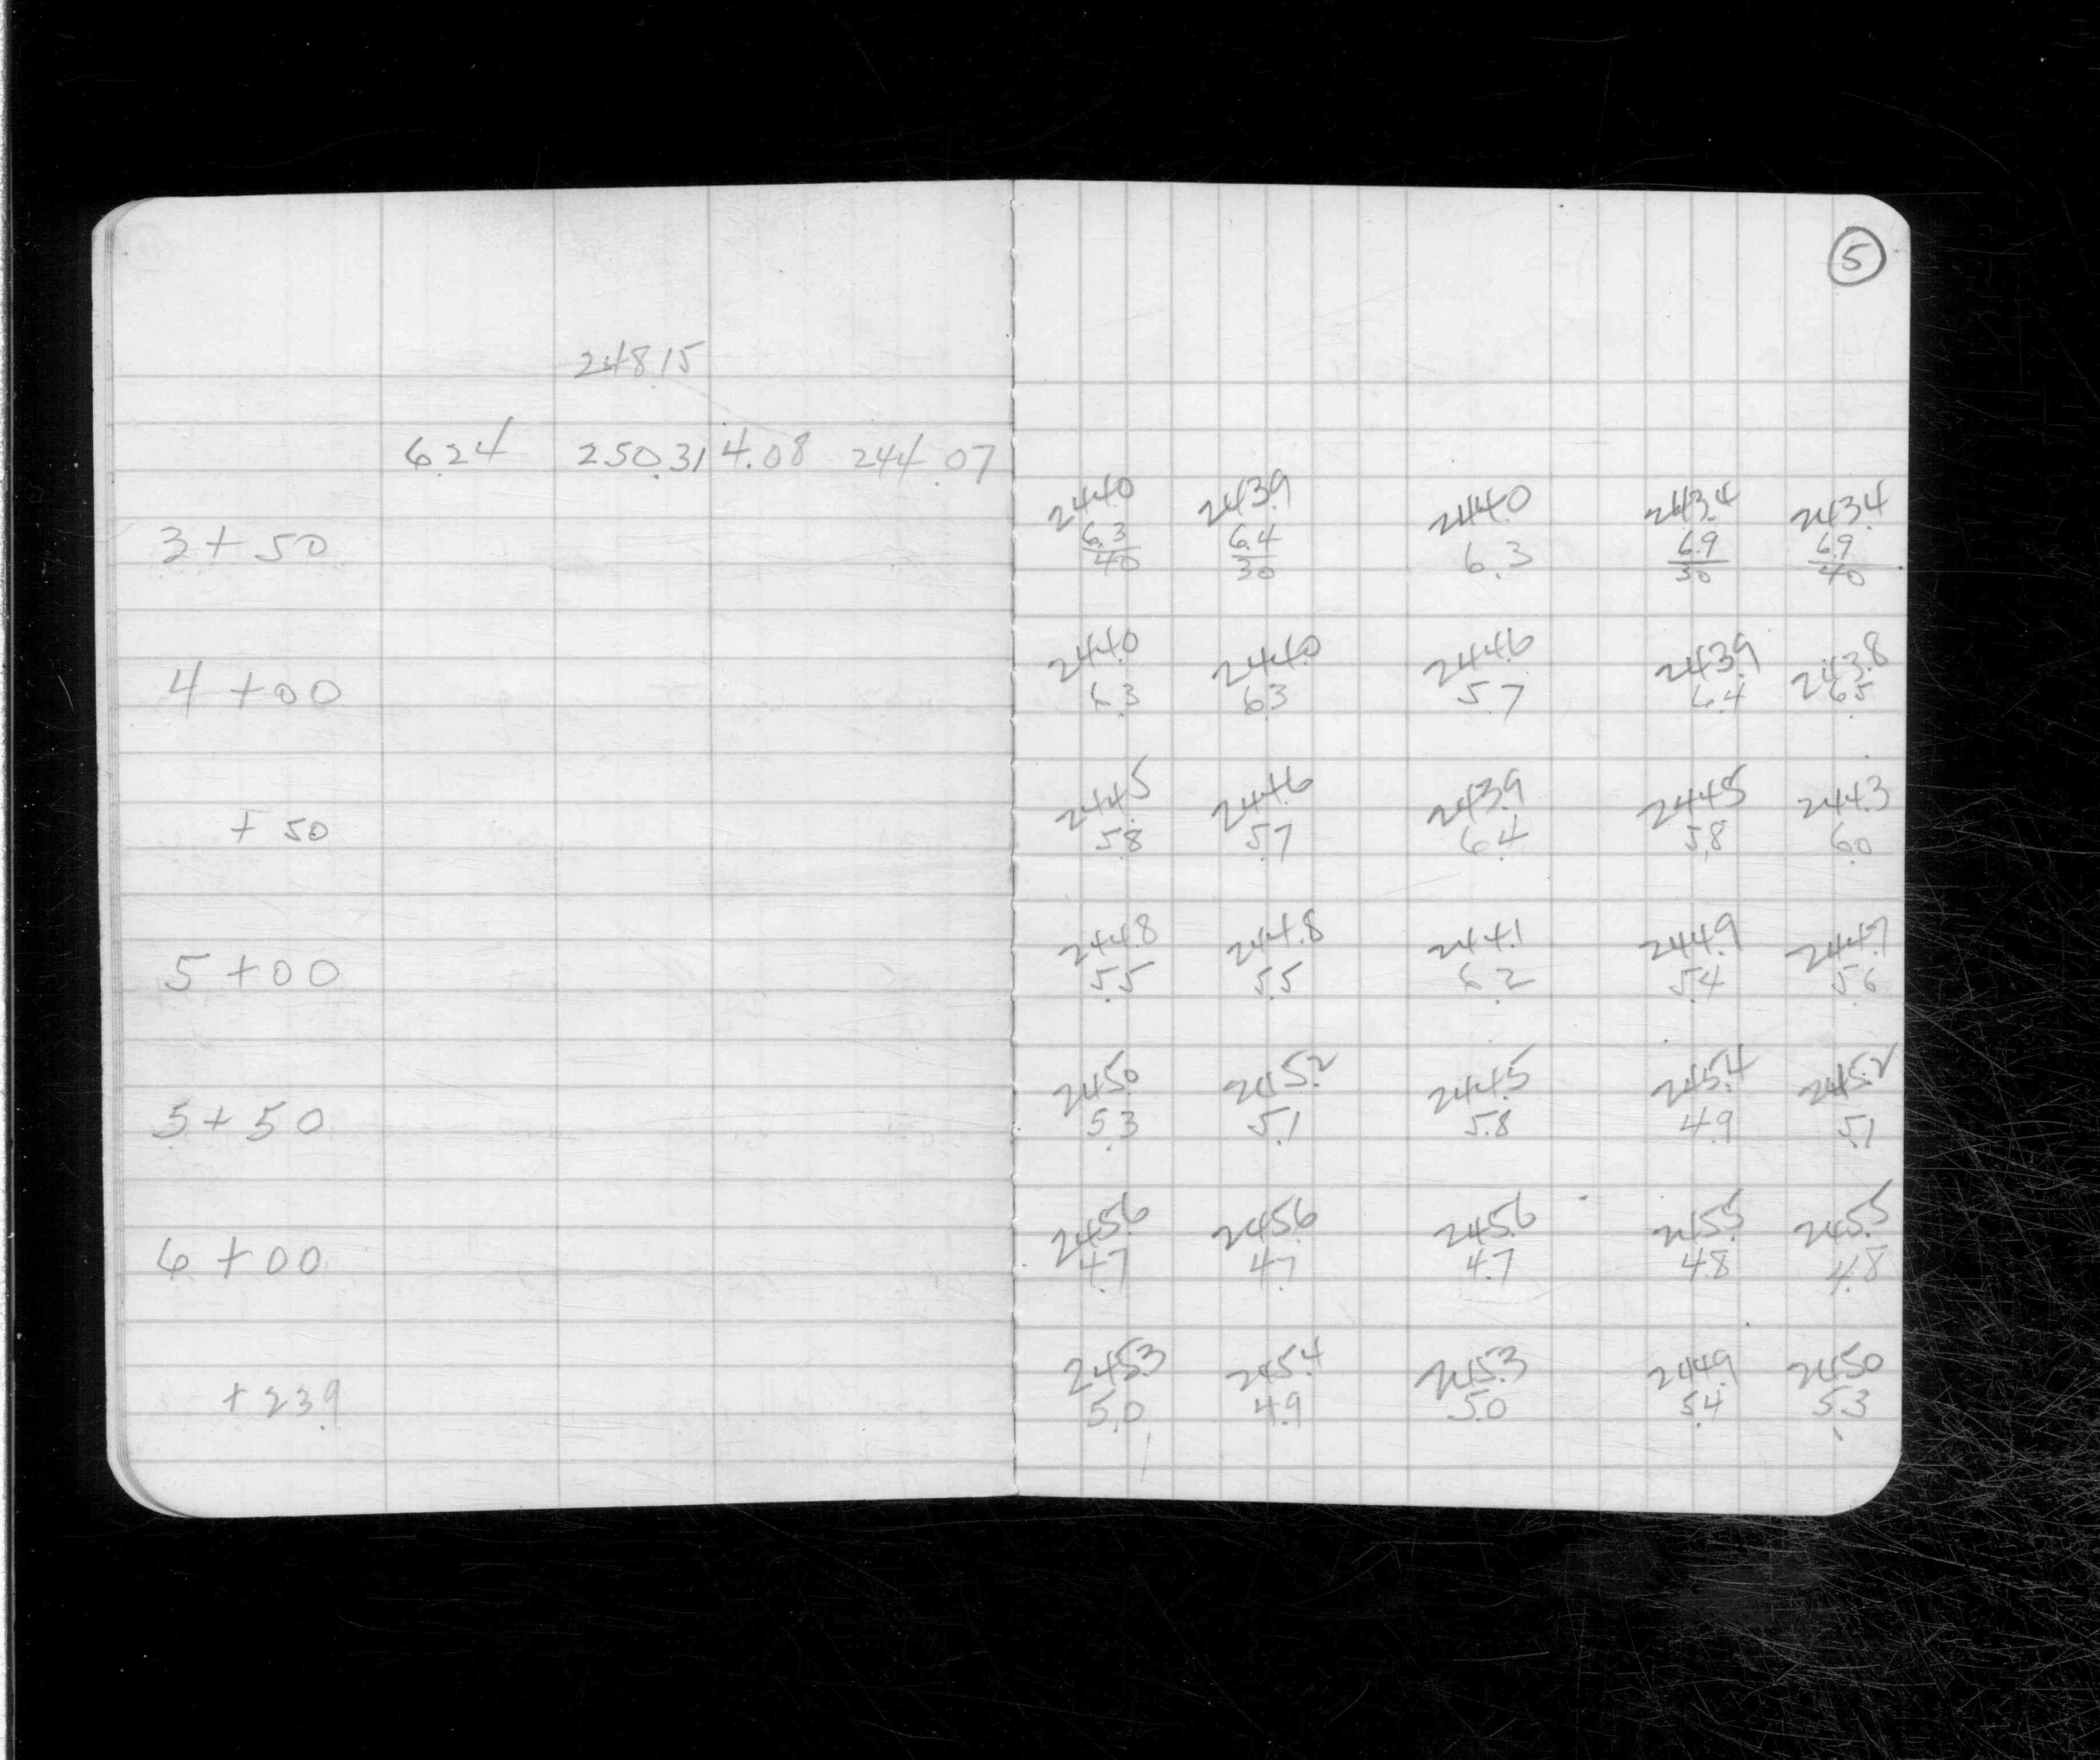 5
248.15
6.24 250.31 4.08 244.07
244.0 243.9 244.0 243.4 243.4
3+50 6.3/40 6.4/30 6.3 6.9/30 6.9/40
244.0 244.0 244.6 243.9 243.8
4+00 6.3 6.3 5.7 6.4 6.5
244.5 244.6 243.9 244.5 244.3
+50 5.8 5.7 6.4 5.8 6.0
244.8 244.8 244.1 244.9 244.7
5+00 5.5 5.5 6.2 5.4 5.6
245.0 245.2 244.5 245.4 245.2
5+50 5.3 5.1 5.8 4.9 5.1
245.6 245.6 245.6 245.5 245.5
6+00 4.7 4.7 4.7 4.8 4.8
245.3 245.4 245.3 244.9 245.0
+23.9 5.0 4.9 5.0 5.4 5.3